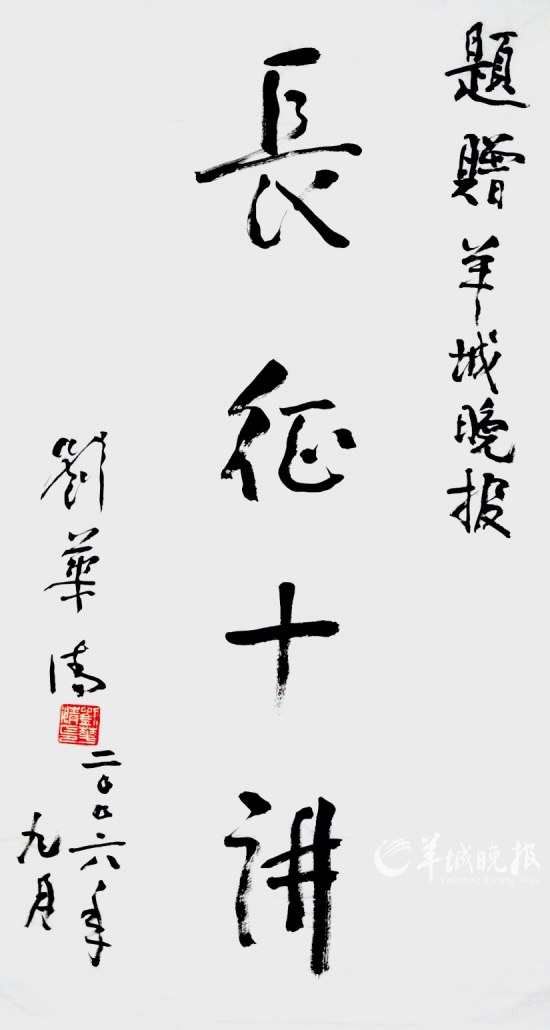 題贈羊城晚报
長征十讲
劉華清
二〇〇六年
九月
羊城晚报
Yangcheng Evening News